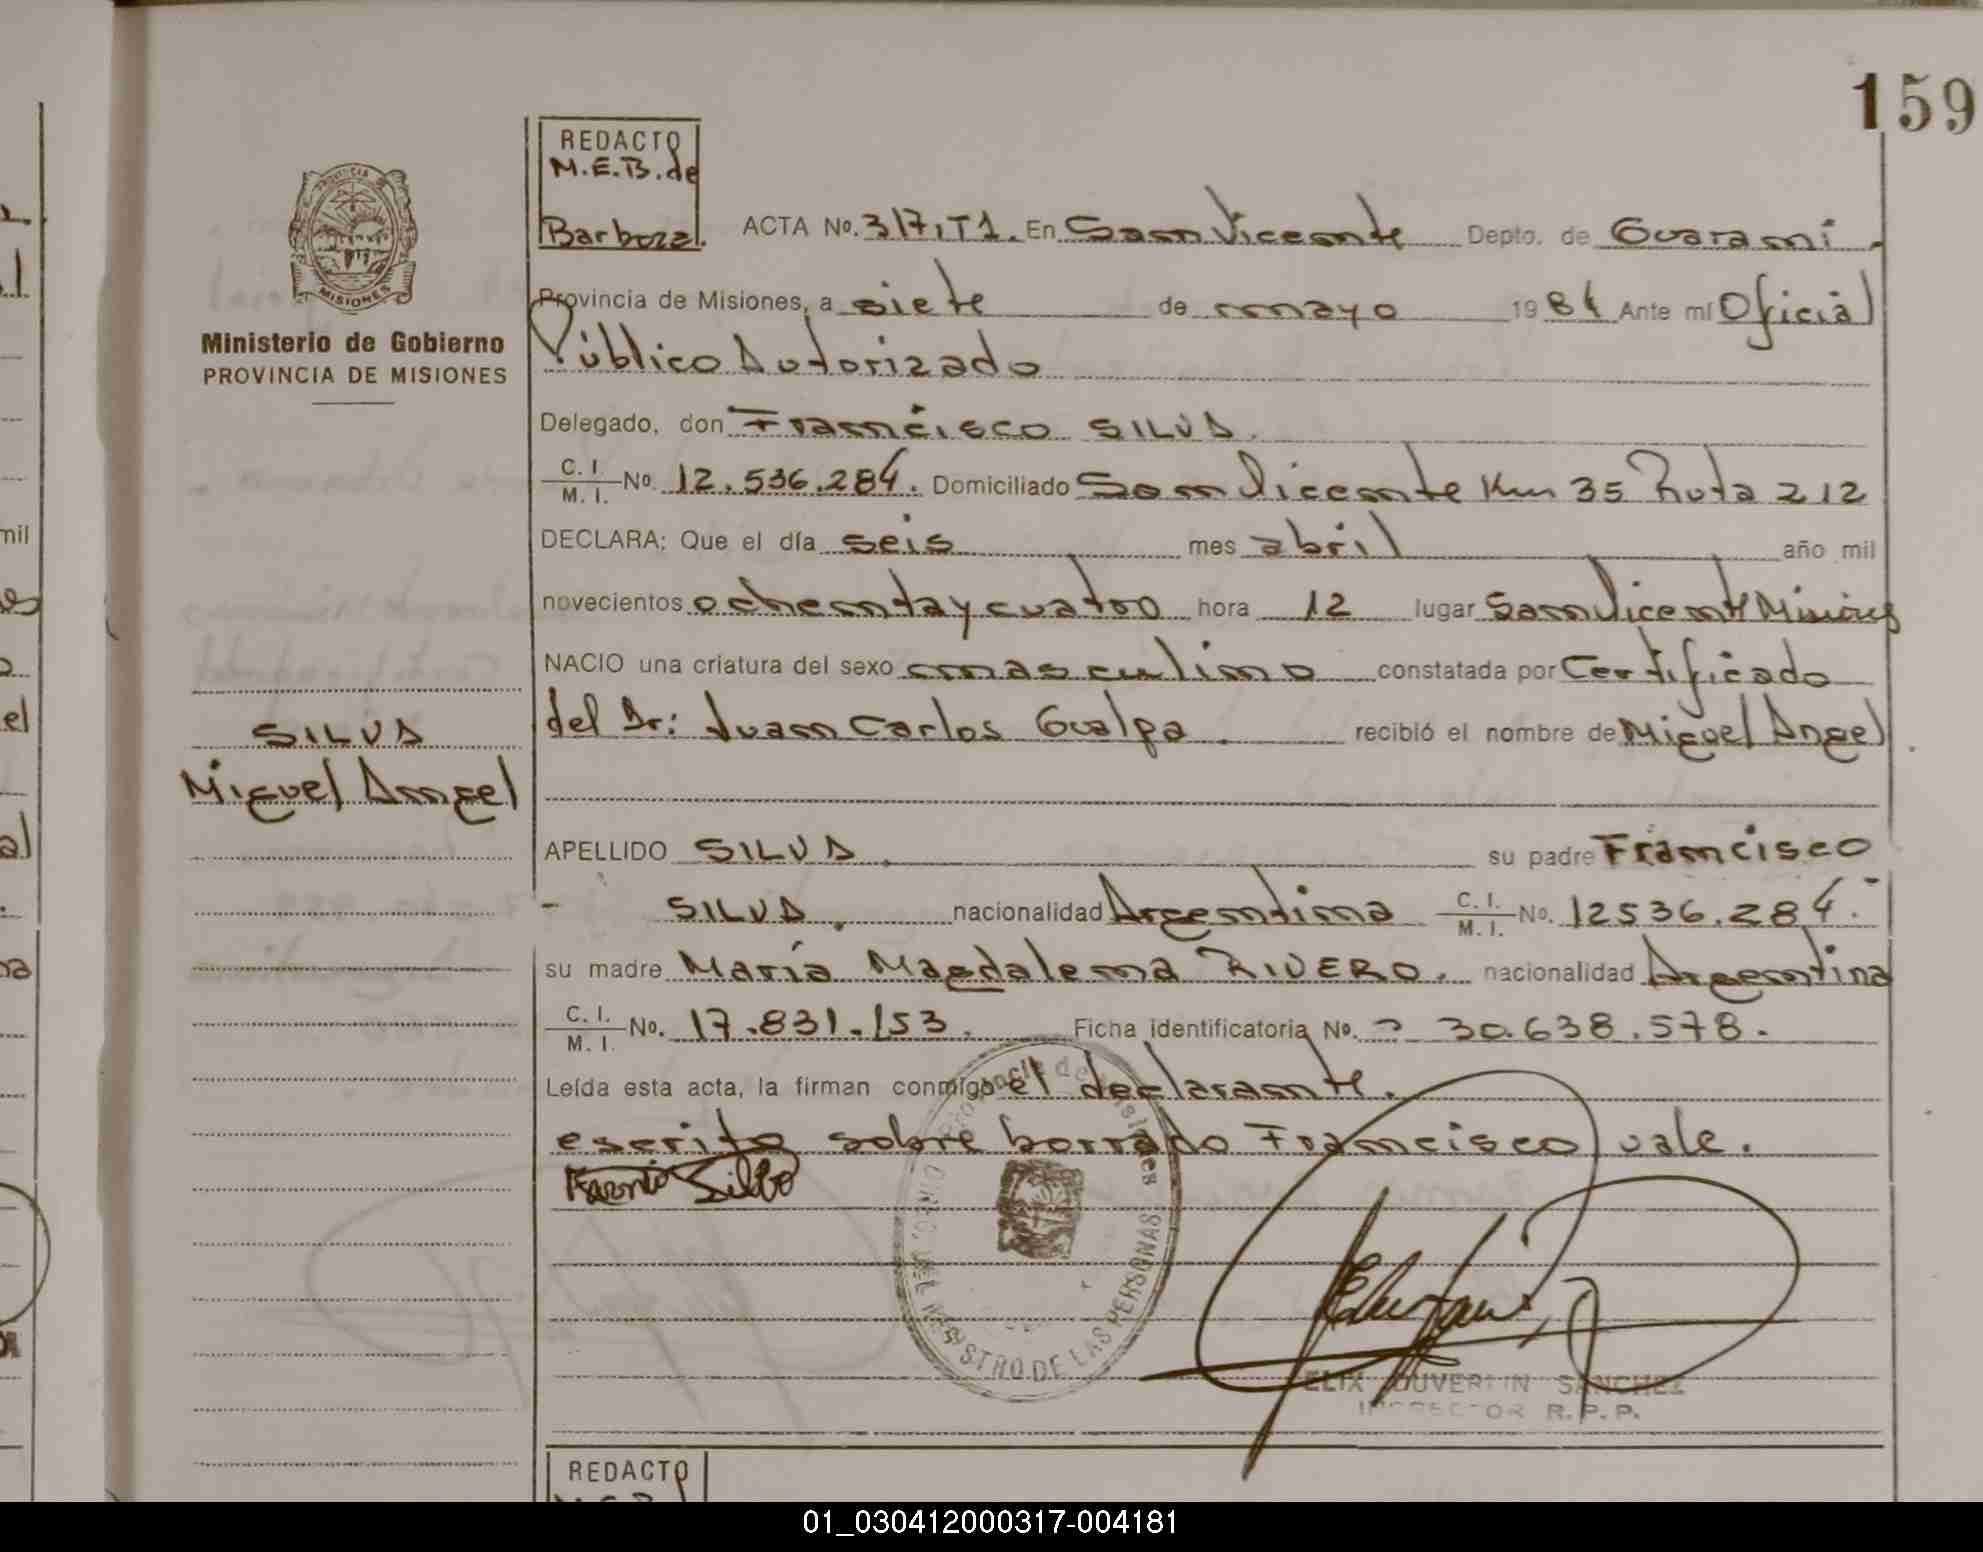 159
REDACTO
M.E.B. de
Barboza.
PROVINCIA DE
MISIONES
Ministerio de Gobierno
PROVINCIA DE MISIONES
ACTA No. 317, T1. En San Vicente Depto. de Guaraní.
Provincia de Misiones, a siete de mayo 1984 Ante mí Oficial
Público Autorizado
Delegado, don Francisco SILVA.
C. I.
M. I. No. 12.536.284. Domiciliado San Vicente Km 35 Ruta 212
DECLARA; Que el día seis mes abril año mil
novecientos ochenta y cuatro hora 12 lugar San Vicente Misiones
NACIO una criatura del sexo masculino constatada por Certificado
del Dr: Juan Carlos Gualpa recibió el nombre de Miguel Angel
SILVA
Miguel Angel
APELLIDO SILVA. su padre Francisco
- SILVA. nacionalidad Argentina C. I. M. I. No. 12536.284.-
su madre María Magdalena RIVERO. nacionalidad Argentina
C. I.
M. I. No. 17.831.153. Ficha identificatoria No. 30.638.578.
Leída esta acta, la firman conmigo el declarante.
escrito sobre borrado Francisco vale.
Provincia de Misiones
DIREC. DEL REGISTRO DE LAS PERSONAS
SANCHEZ
INSPECTOR R.P.P.
REDACTO
01_030412000317-004181